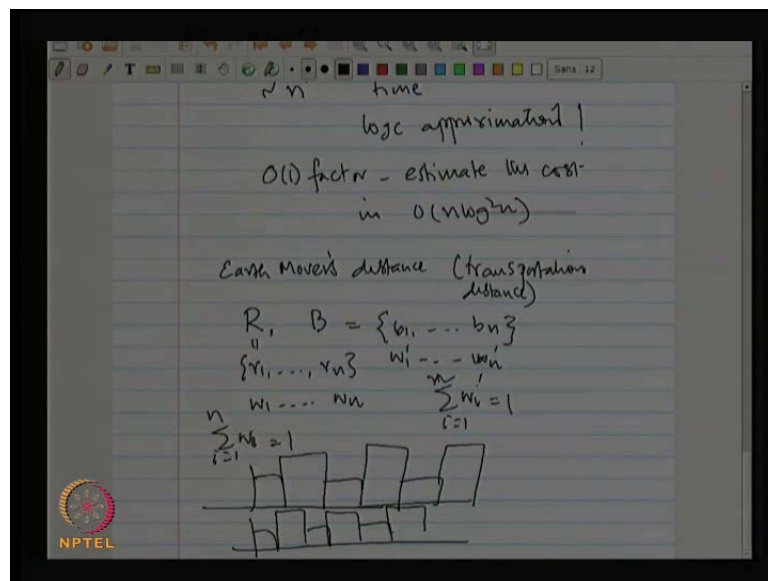 Sans 12
~ n time
logc approximation!
O(1) factor - estimate the cost
in O(n log²n)
Earth Mover's distance (transportation
distance)
R, B = {b1, ... bn}
"
{r1, ..., rn} w1' ... wn'
w1 .... wn
n Σ i=1 wi' = 1
n Σ i=1 wi = 1
NPTEL